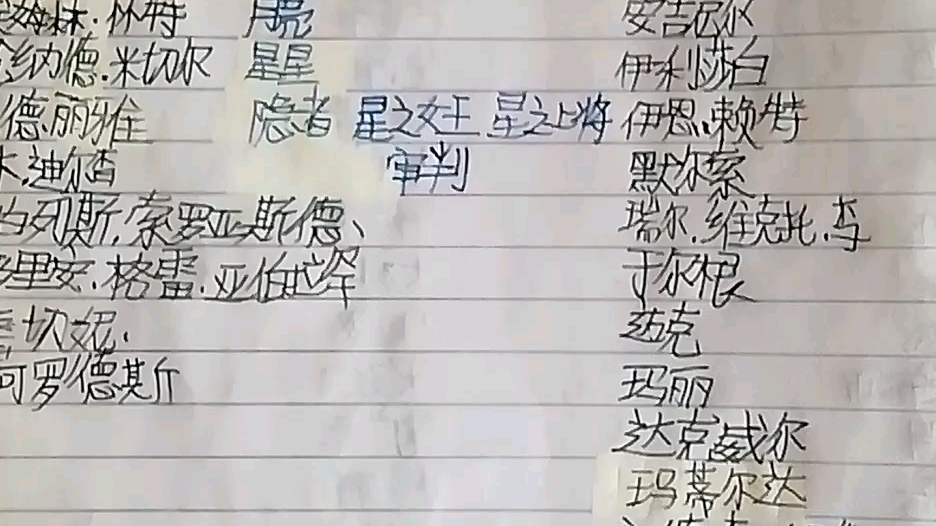 姆林·怀特 月亮 安吉尼仪
纳德·米切尔 星星 伊利莎白
德丽雅 隐者 星之女王 星之上将 伊恩·赖特
木·迪尔查 审判 默尔索
白列斯·索罗亚斯德、 瑞尔·维克托·李
里安·格雷·亚伯拉罕 于尔根
切妮· 达克
阿罗德斯 玛丽
达克威尔
玛蒂尔达